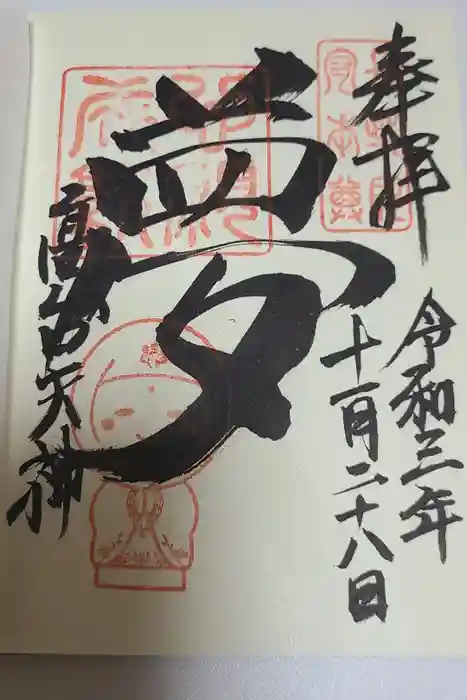 奉拝
令和三年
十一月二十八日
夢
高台天神